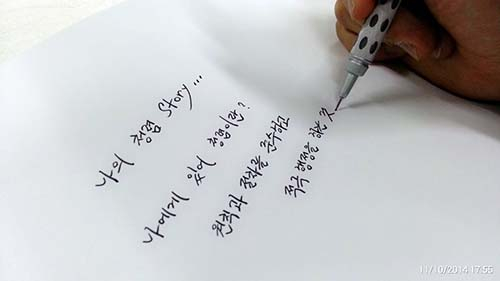 나의 청렴 Story...
나에게 있어 청렴이란?
원칙과 절차를 준수하고
적극 행정을 하는 것
11/10/2014 17:55